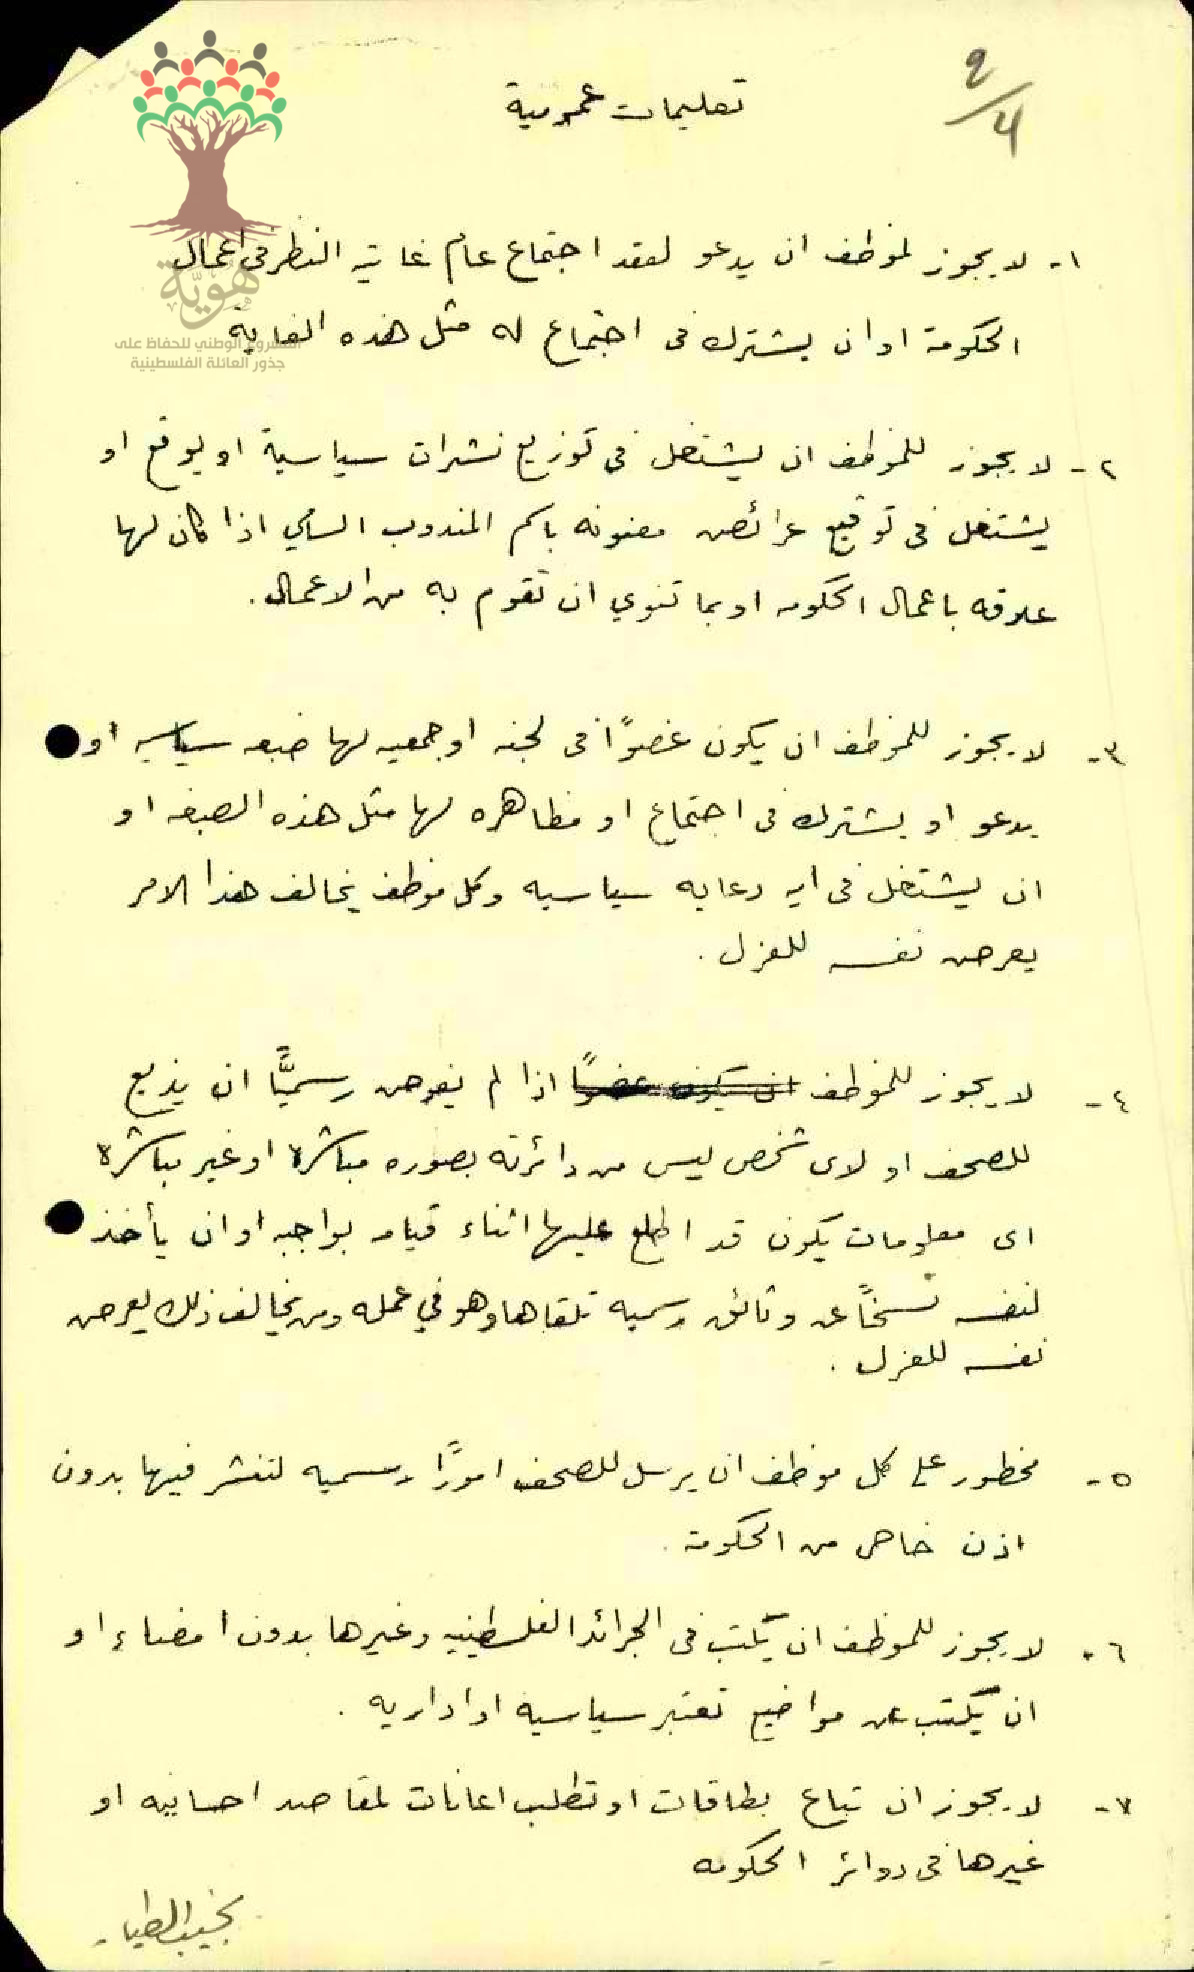 ٩/٤
تعليمات عمومية
هوية
المشروع الوطني للحفاظ على
جذور العائلة الفلسطينية
١- لا يجوز لموظف ان يدعو لعقد اجتماع عام غايته النظر في اعمال
الحكومة او ان يشترك في اجتماع له مثل هذه الغاية
٢- لا يجوز للموظف ان يشتغل في توزيع نشرات سياسية او يوقع او
يشتغل في توقيع عرائض معنونه باسم المندوب السامي اذا كان لها
علاقه باعمال الحكومه او بما تنوي ان تقوم به من الاعمال.
٣- لا يجوز للموظف ان يكون عضوًا في لجنه او جمعيه لها صبغه سياسيه او
يدعو او يشترك في اجتماع او مظاهره لها مثل هذه الصبغه او
ان يشتغل في ايه دعايه سياسيه وكل موظف يخالف هذا الامر
يعرض نفسه للعزل.
٤- لا يجوز للموظف ان يكون عضوًا اذا لم يفوض رسميًّا ان يذيع
للصحف او لاى شخص ليس من دائرته بصوره مباشرة او غير مباشرة
اى معلومات يكون قد اطلع عليها اثناء قيامه بواجبه او ان يأخذ
لنفسه نسخًا عن وثائق رسميه تلقاها وهو في عمله ومن يخالف ذلك يعرض
نفسه للعزل.
٥- محظور على كل موظف ان يرسل للصحف امورًا رسميه لتنشر فيها بدون
اذن خاص من الحكومة.
٦- لا يجوز للموظف ان يكتب في الجرائد الفلسطينيه وغيرها بدون امضاء او
ان يكتب عن مواضيع تعتبر سياسيه او اداريه.
٧- لا يجوز ان تباع بطاقات او تطلب اعانات لمقاصد احسانيه او
غيرها في دوائر الحكومه
نجيب الطيار